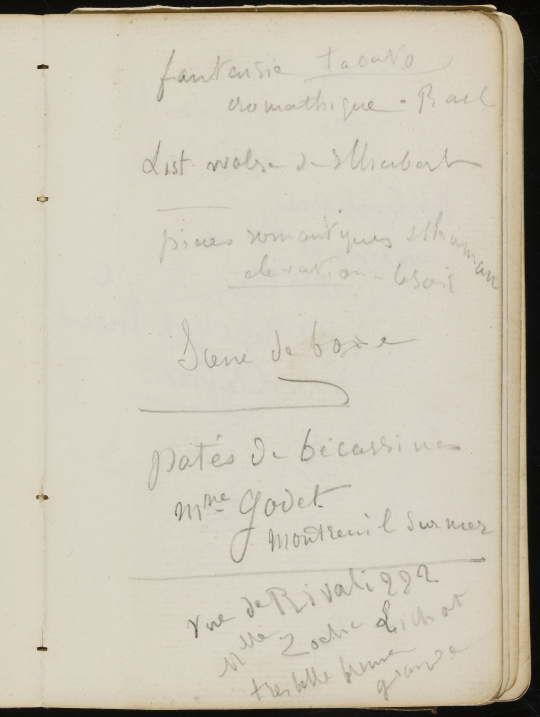 fantaisie
cromathique - Bach
List valse de Shubert
pieces romantiques Shuman
elevation - le soir
Scene de boxe
patés de bécassines
Mme Godet
Montreuil sur mer
rue de Rivoli 222
Mlle
tres belle femme
grande